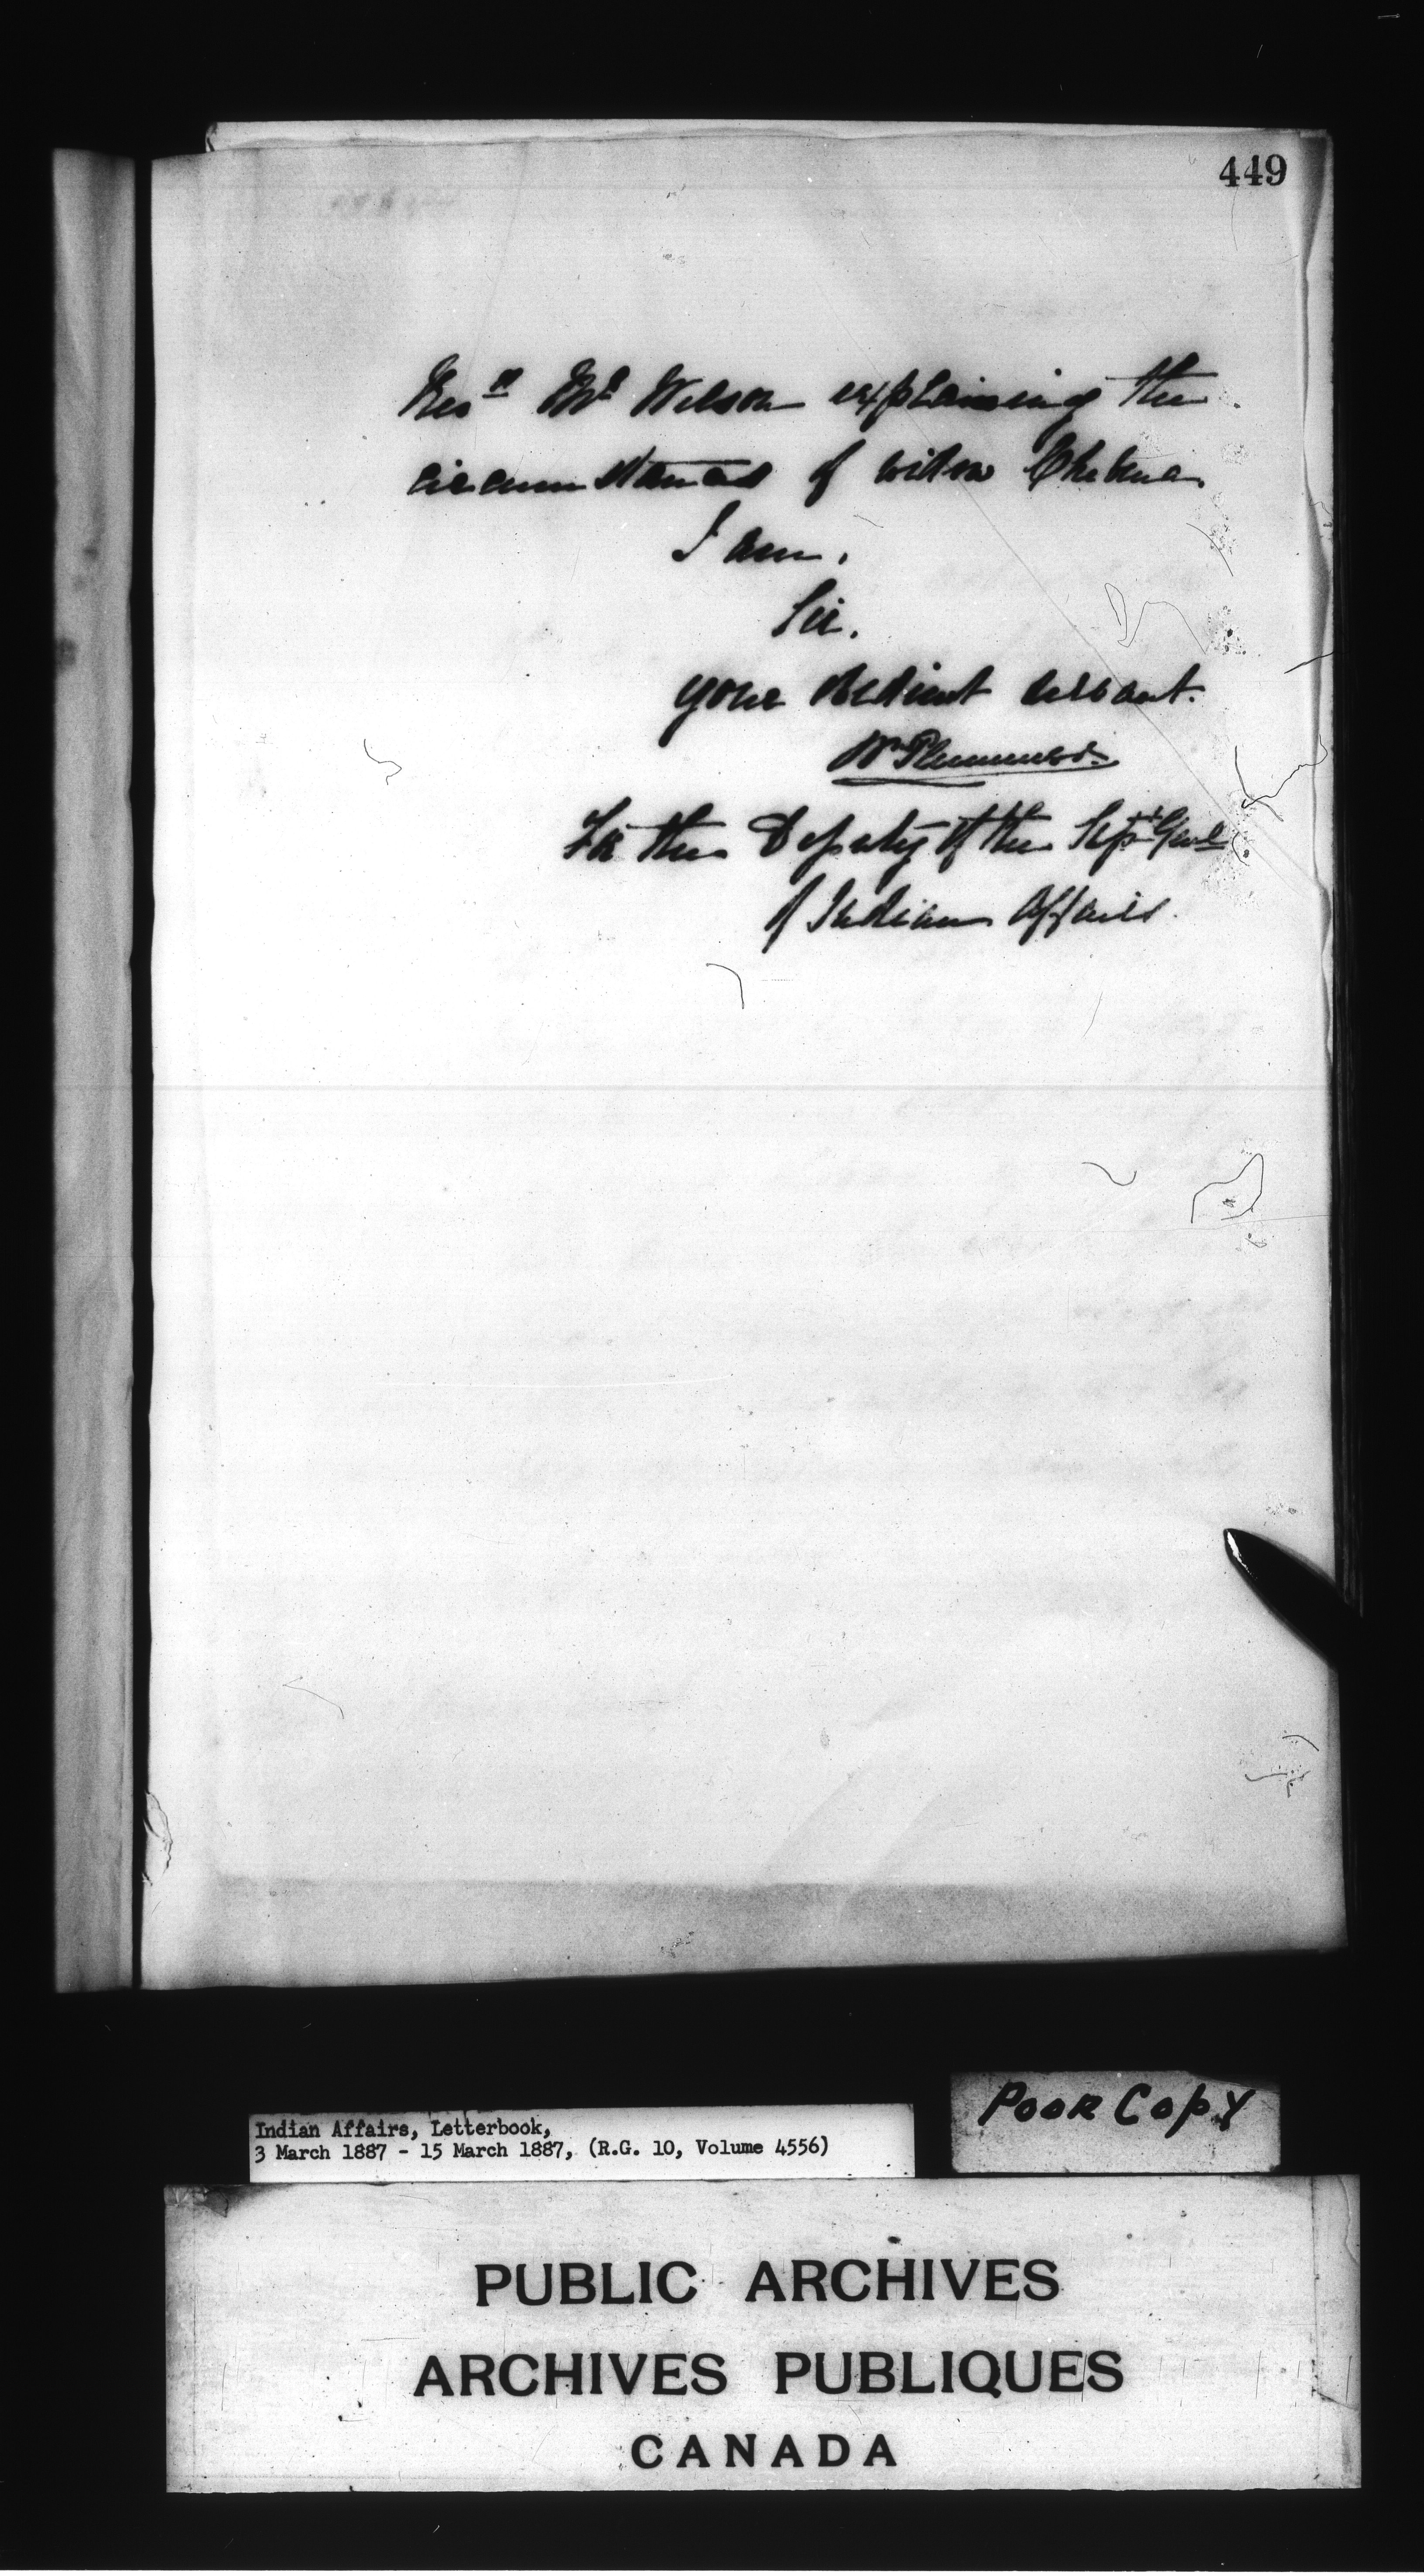 449
Revd Mr Wilson explaining the
circumstances of widow
I am,
Sir,
your obedient servant.
Wm Plummer
For the Deputy of the Supt Genl
of Indian Affairs.
Indian Affairs, Letterbook,
3 March 1887 - 15 March 1887, (R.G. 10, Volume 4556)
POOR COPY
PUBLIC ARCHIVES
ARCHIVES PUBLIQUES
CANADA